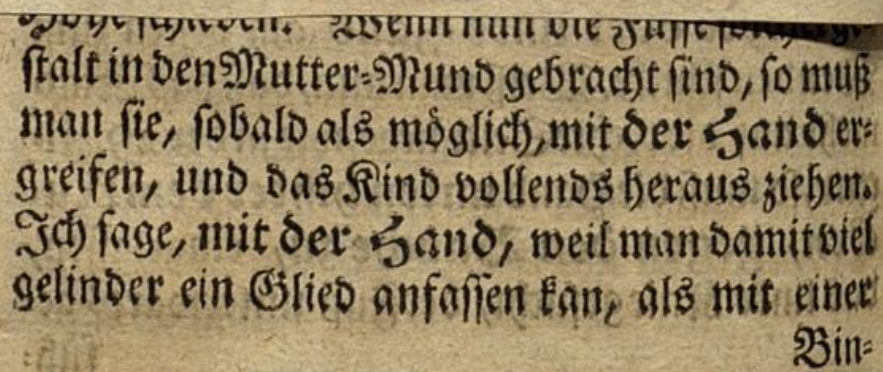 Höhe schieben. Wenn nun die Füsse solcherge-
stalt in den Mutter-Mund gebracht sind, so muß
man sie, sobald als möglich, mit der Hand er-
greifen, und das Kind vollends heraus ziehen.
Ich sage, mit der Hand, weil man damit viel
gelinder ein Glied anfassen kan, als mit einer
Bin-